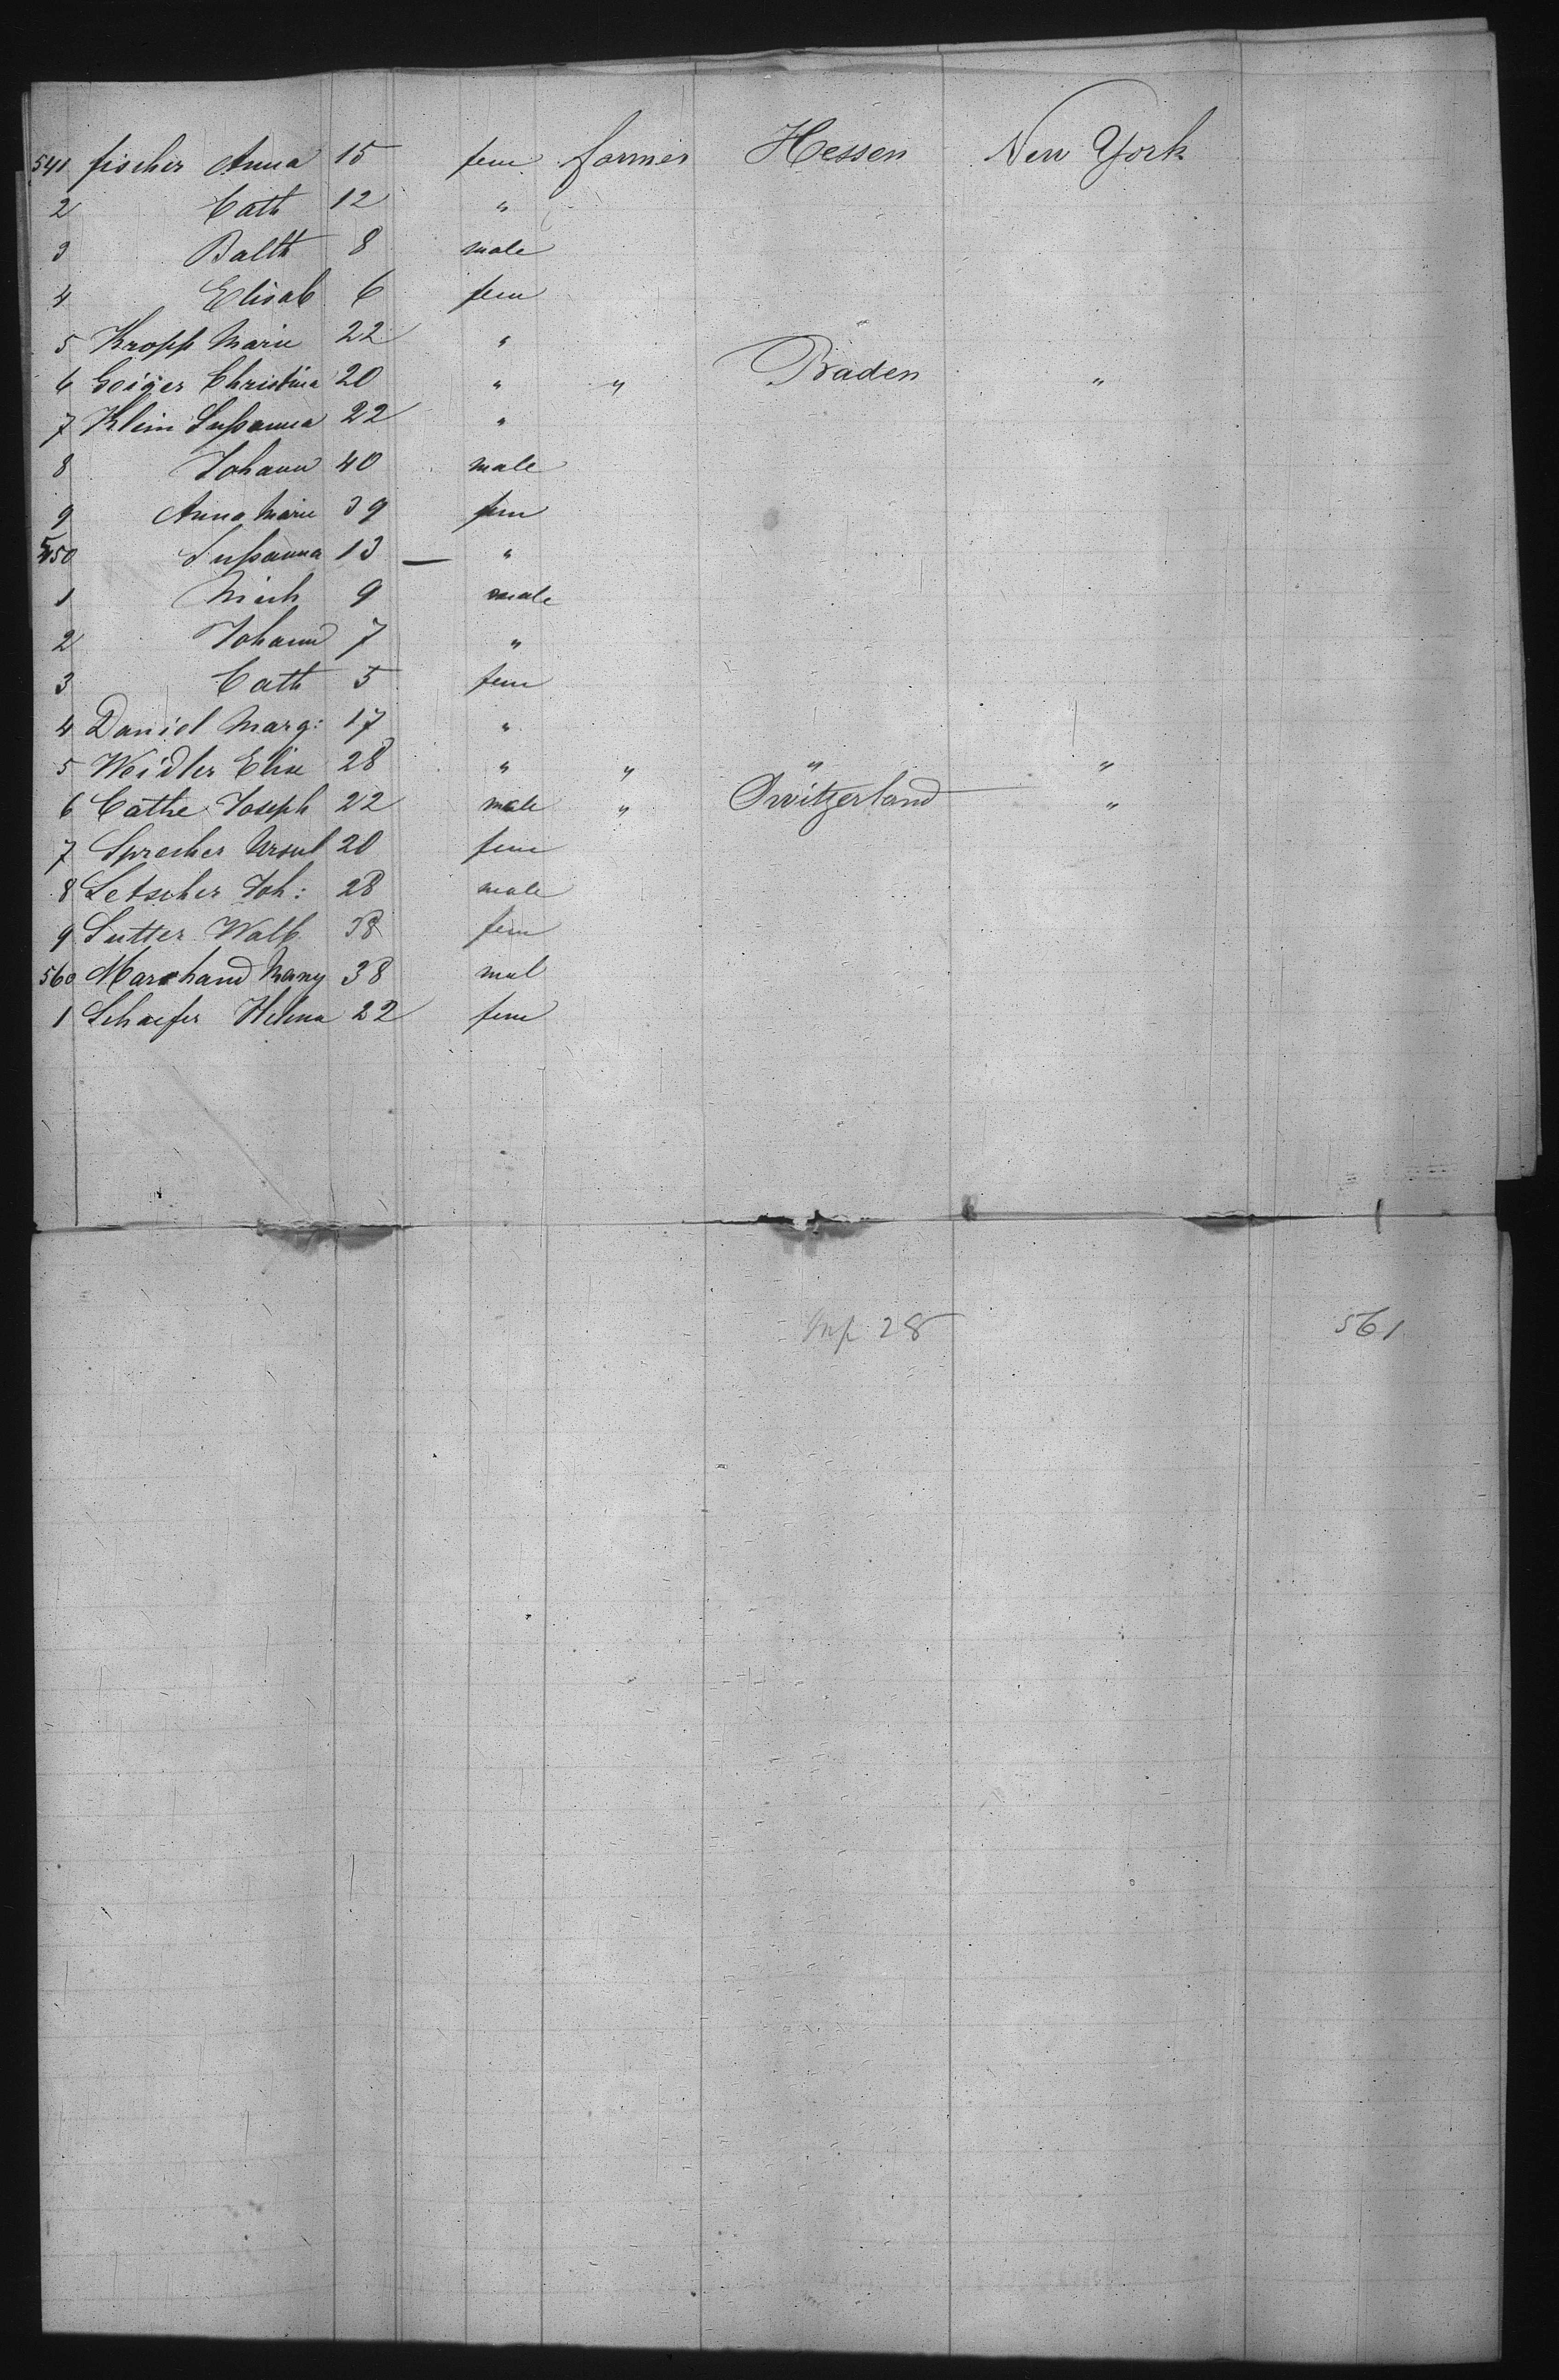 541 fischer Anna 15 fem farmer Hessen New York
2 Cath 12 "
3 Balth 8 male
4 Elisab 6 fem
5 Kropp Marie 22 "
6 Geiger Christina 20 " " Baden "
7 Klein Sußanna 22 "
8 Johann 40 male
9 Anna Marie 39 fem
550 Sußanna 13 — "
1 Mich 9 male
2 Johann 7 "
3 Cath 5 fem
4 Daniel Marg: 17 "
5 Weidler Elise 28 " " " "
6 Cathe Joseph 22 male " Switzerland "
7 Sprecher Ursul 20 fem
8 Letscher Joh: 28 male
9 Sutter Walb 38 fem
560 Marchand Nany 38 mal
1 Schaefer Helena 22 fem
Inf 28 561